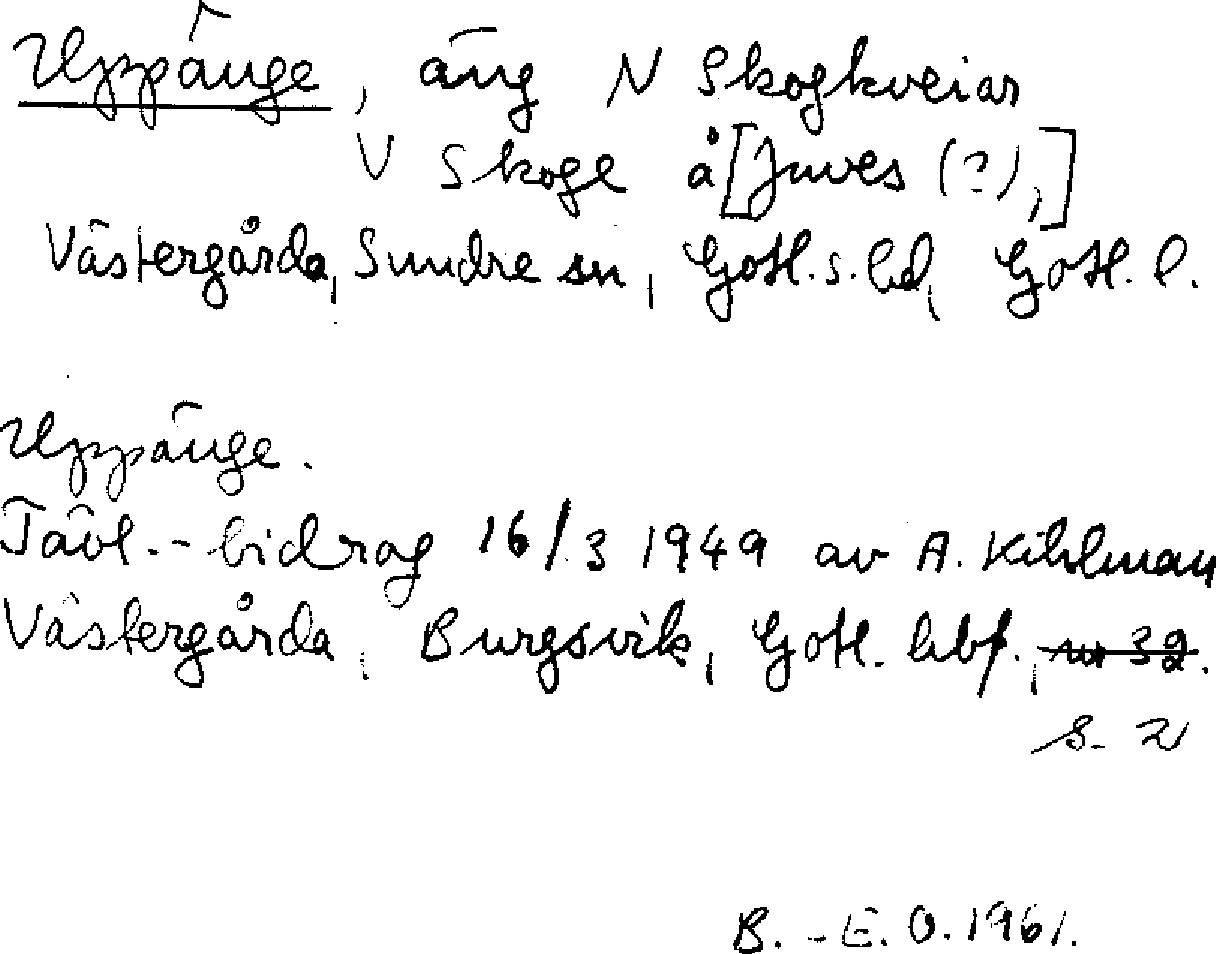 Uppänge, äng N Skogkveiar
V Skoge å [Juves (?),]
Västergårda, Sundre sn, Gotl. s. hd, Gotl. l.
Uppänge.
Tävl.-bidrag 16/3 1949 av A. Kihlman
Västergårda, Burgsvik, Gotl. hbf., nr 32.
s. 2
B.-E. O. 1961.